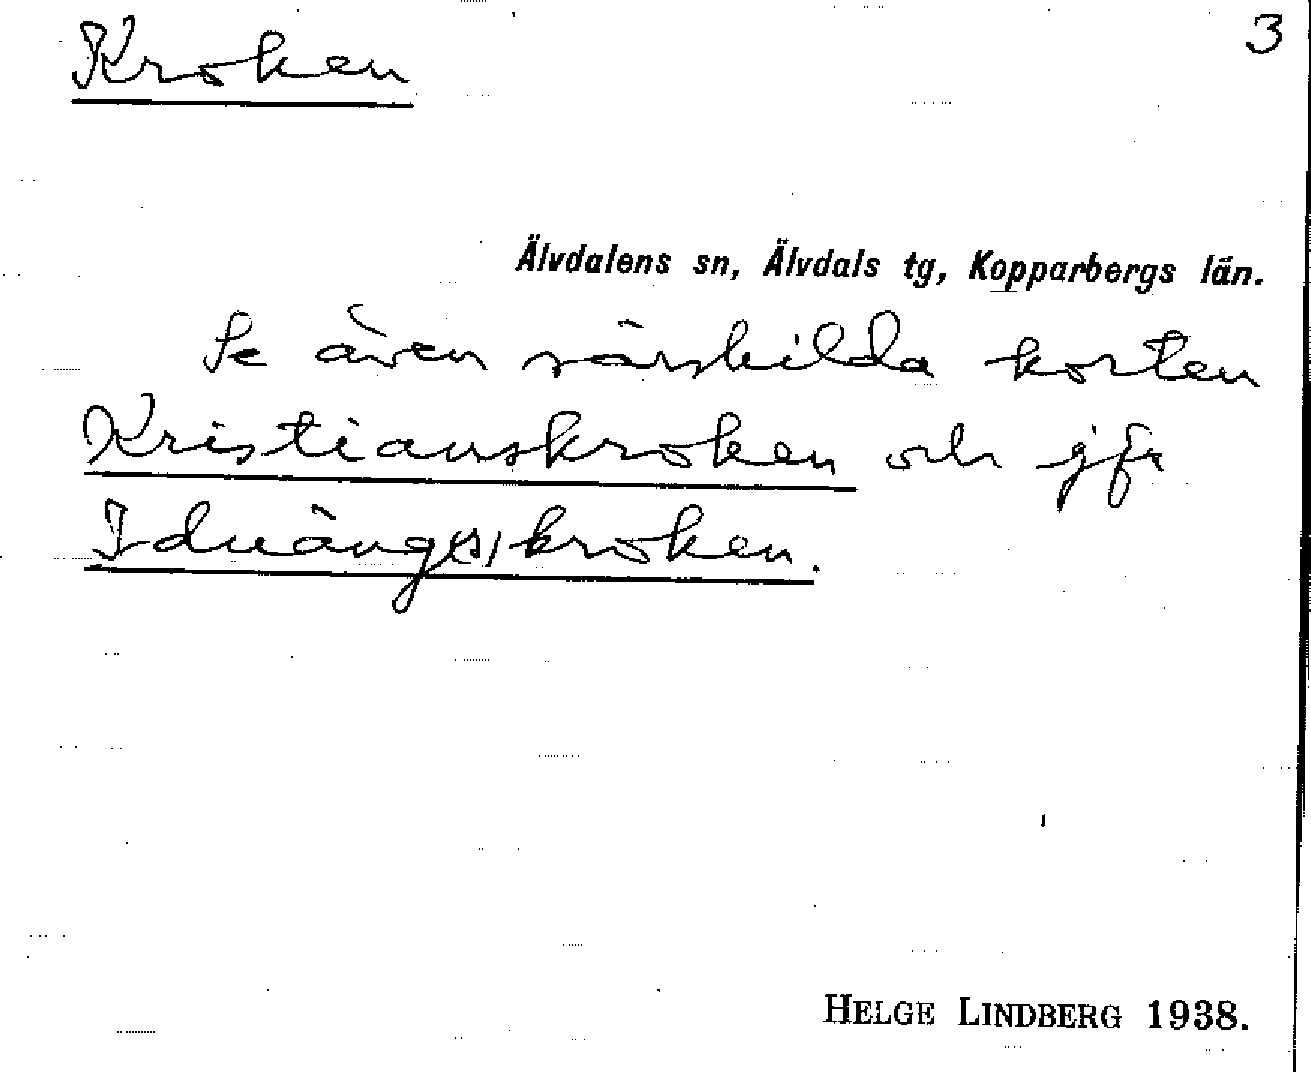 Kroken
3
Älvdalens sn, Älvdals tg, Kopparbergs län.
Se även särskilda korten
Kristianskroken och jfr
Idnäng(s)kroken.
HELGE LINDBERG 1938.